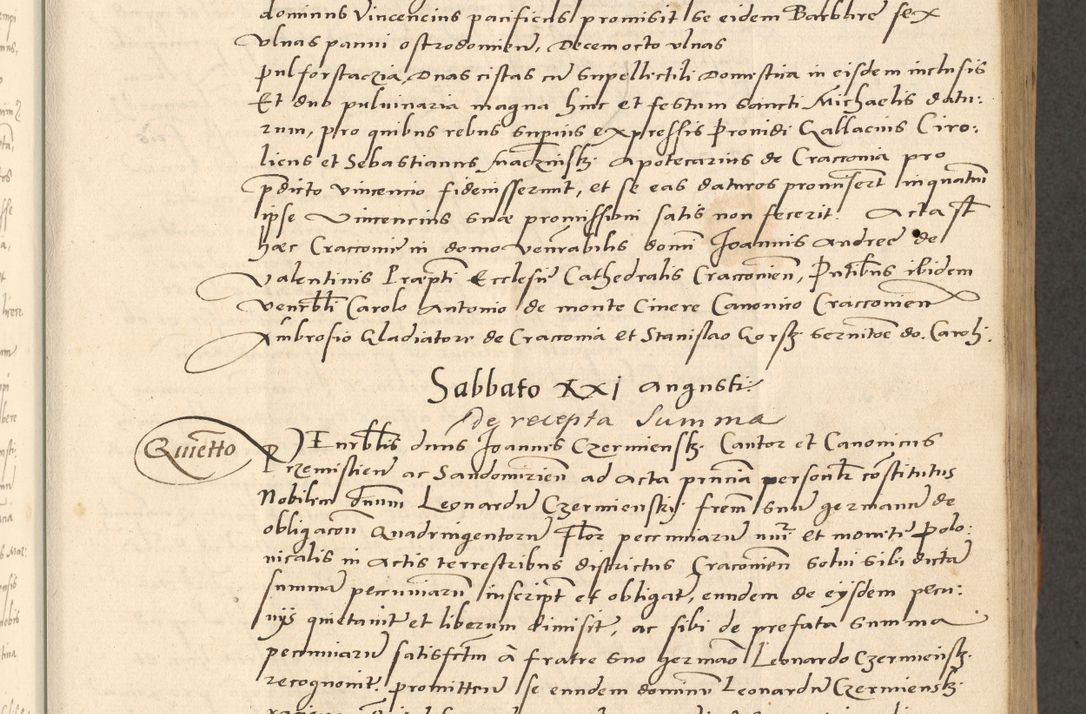 dominus Vincencius pacificus promisit se eidem Barbare sex
Ulnas panni ostrodomien, Decemocto ulnas
Duas cistas cu Supellectili Domestica in eisdem inclusis
Et duo puluinaria magna hinc et festum sancti Michaelis datu:
rum, pro quibus rebus supius expressis Providi Gallacius Ciro:
licus et Sebastianus Apotecarius de Cracovia pro
pdicto Vincencio fideiusserunt, et se eas daturos promiserut inquatum
ipse Vincencius suae promissioni satis non fecerit. Acta st
haec Cracovie in domo Venerabilis domi Joannis Andree de
Valentinis Praepti Ecclesie Cathedralis Cracovien, Pntibus ibidem
Venrbli Carolo Antonio de monte Cinere Canonico Cracovien
Ambrosio Gladiatore de Cracovia et Stanislao Gorsky servitoe do. Caroli.
Sabbato XXI Augusti.
de recepta Summa
Quietto
VEnrblis dnus Joannes Czermiensky Cantor et Canonicus
Przemislien ac Sandomirien ad Acta pntia personlr constitutus
Nobilem dnum Leonardu Czermiensky frem suu germanu de
obligaconi Quadringentoru Flor pecuniaru nui et moneti Polo:
nicalis in Actis terrestribus districtus Cracovien solui sibi dicta
summa pecuniaru inscript et obligat, eundem de eysdem pecu:
nijs quietauit et liberum dimisit, ac sibi de prefata Summa
pecuniaru satisfctm a fratre suo germao Leonardo Czermiensky
recognouit. promittens se eundem dominu Leonardu Czermiensky